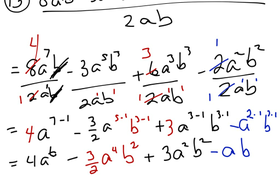 2ab
= 8a⁷b/2ab - 3a⁵b³/2ab + 6a³b³/2ab - 2a²b²/2ab
= 4a⁷⁻¹ - 3/2 a⁵⁻¹b³⁻¹ + 3a³⁻¹b³⁻¹ - a²⁻¹b²⁻¹
= 4a⁶ - 3/2 a⁴b² + 3a²b² - ab